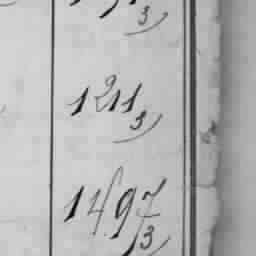 1211 3
1497 3